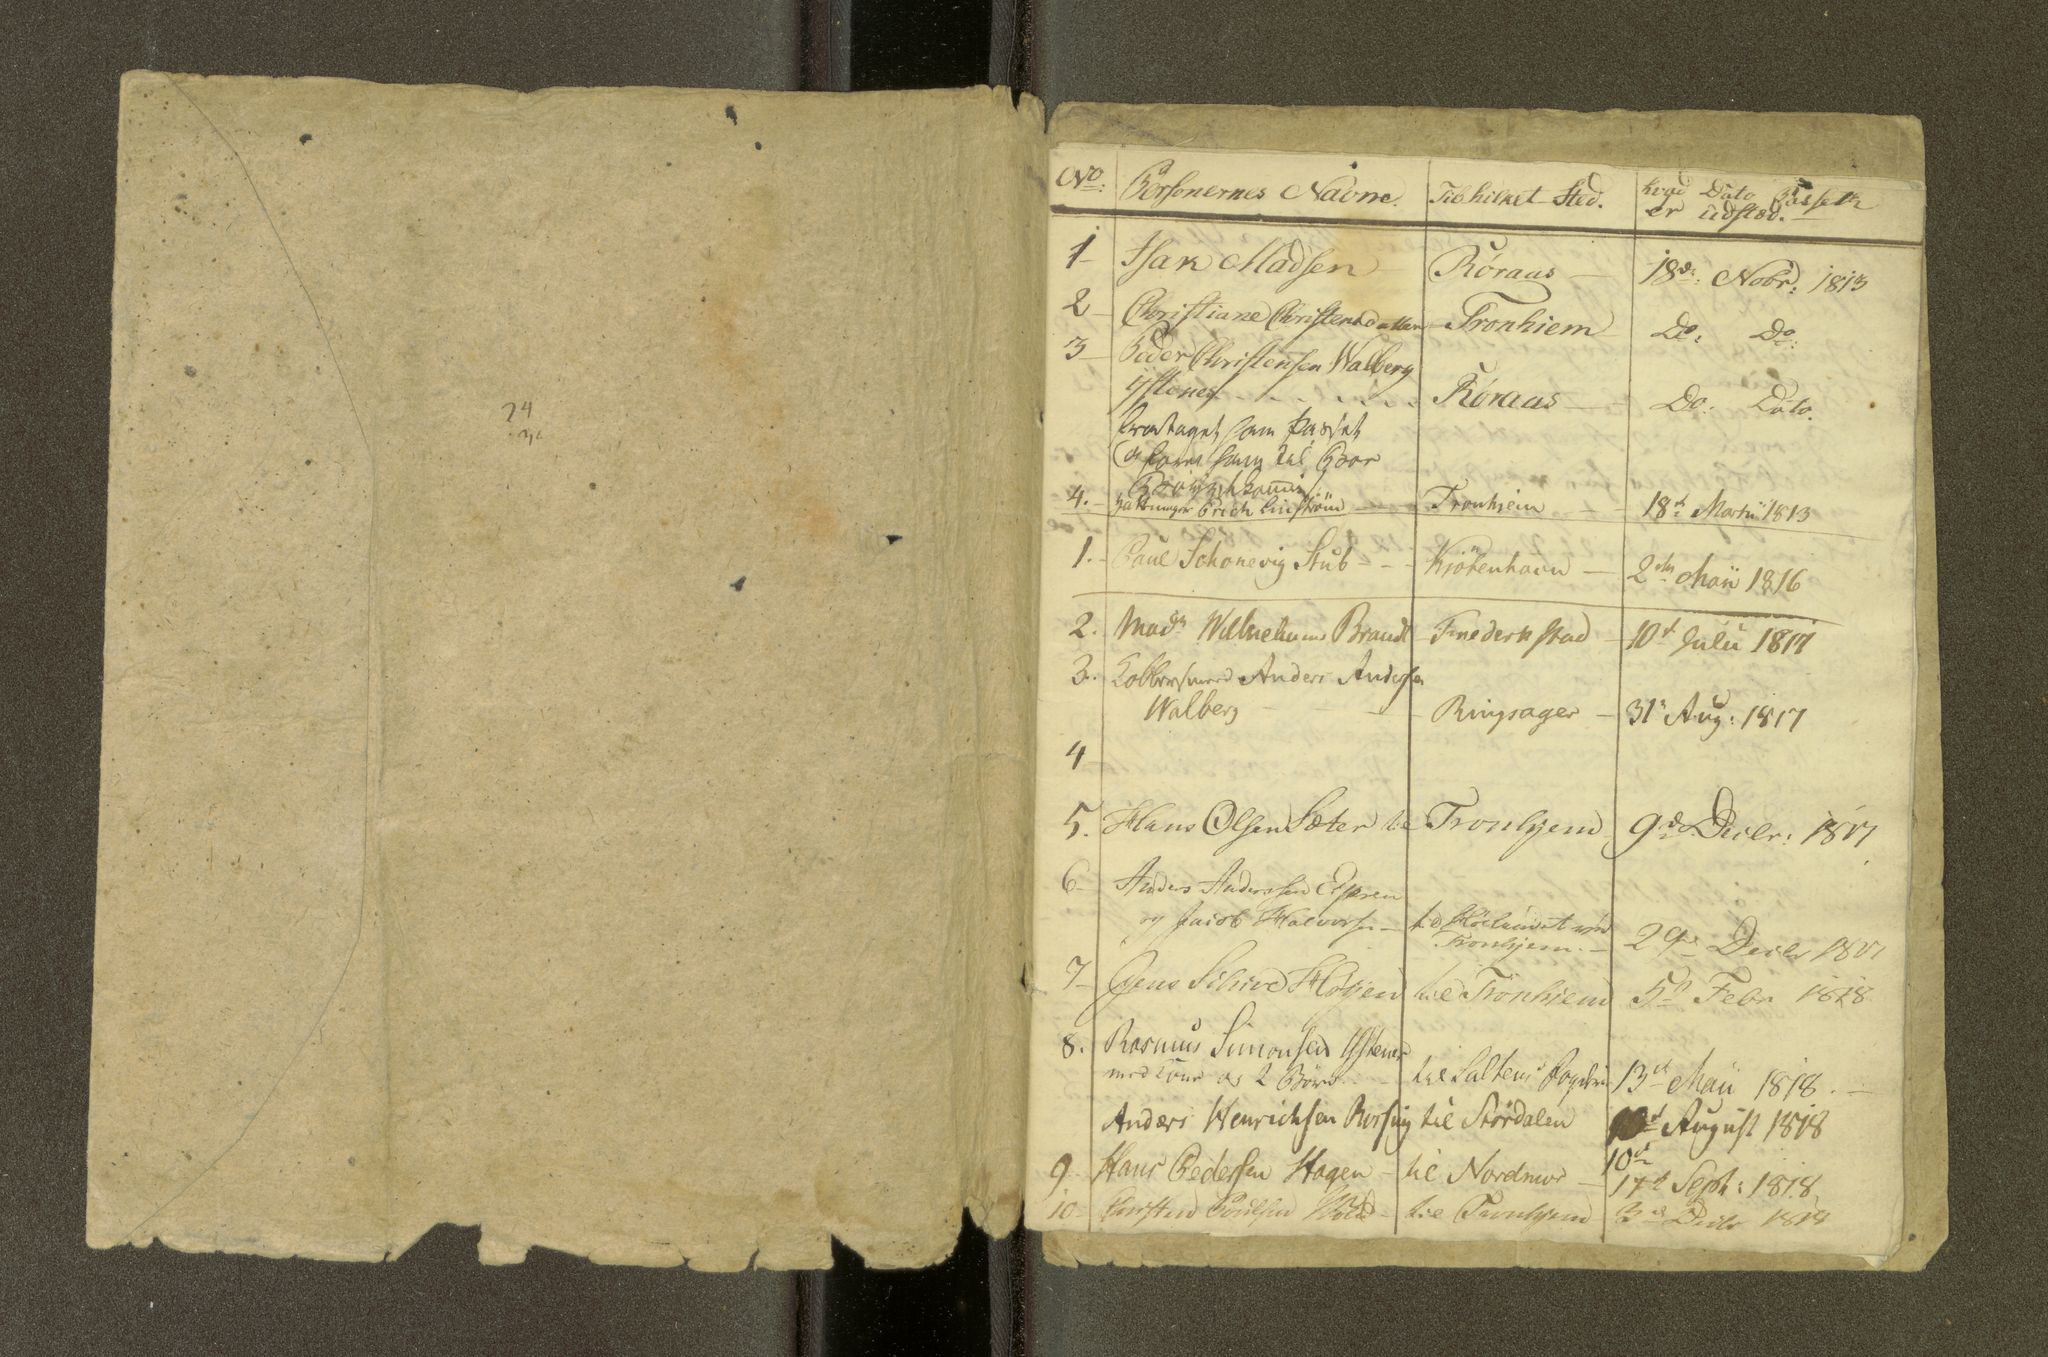 24
No: Personernes Navne. Til hvilket Sted. hvad Dato Passet
er udsted.
1 Isak Madsen Röraas 18de: Nobr: 1813
2 Christiane Christensdatter Tronhiem Do: Do:
3 Peder Christensen Walberg
Ystenes Röraas Do: Dato.
som Passet
4. Erich Linström Tronhjem 18de Martii 1813
1. Paul Schonevig Stub Kjöbenhavn 2den Maii 1816
2. Madm Brandt Frederikstad 10de Julii 1817
3. Kobbersmed Anders Andersen
Walberg Ringsager 31te Aug: 1817
4
5. Hans Olsen Sæter til Tronhjem 9de Decbr: 1817
6 Anders Anderssen
og Jacob Halvorsen til ved
Tronhjem 29de Decbr 1817
7 Jens til Tronhiem 5te Febr 1818
8. Rasmus Simonsen Ystenes
med Kone og 2 Börn til Saltens Fogderie 13de Maii 1818.
Anders Henrichsen Rorsing til Stördalen August 1818
10de
9 Hans Pedersen Hagen til Nordmör 17de Septr: 1818.
10 til Tronhjem 3de Decbr 1818